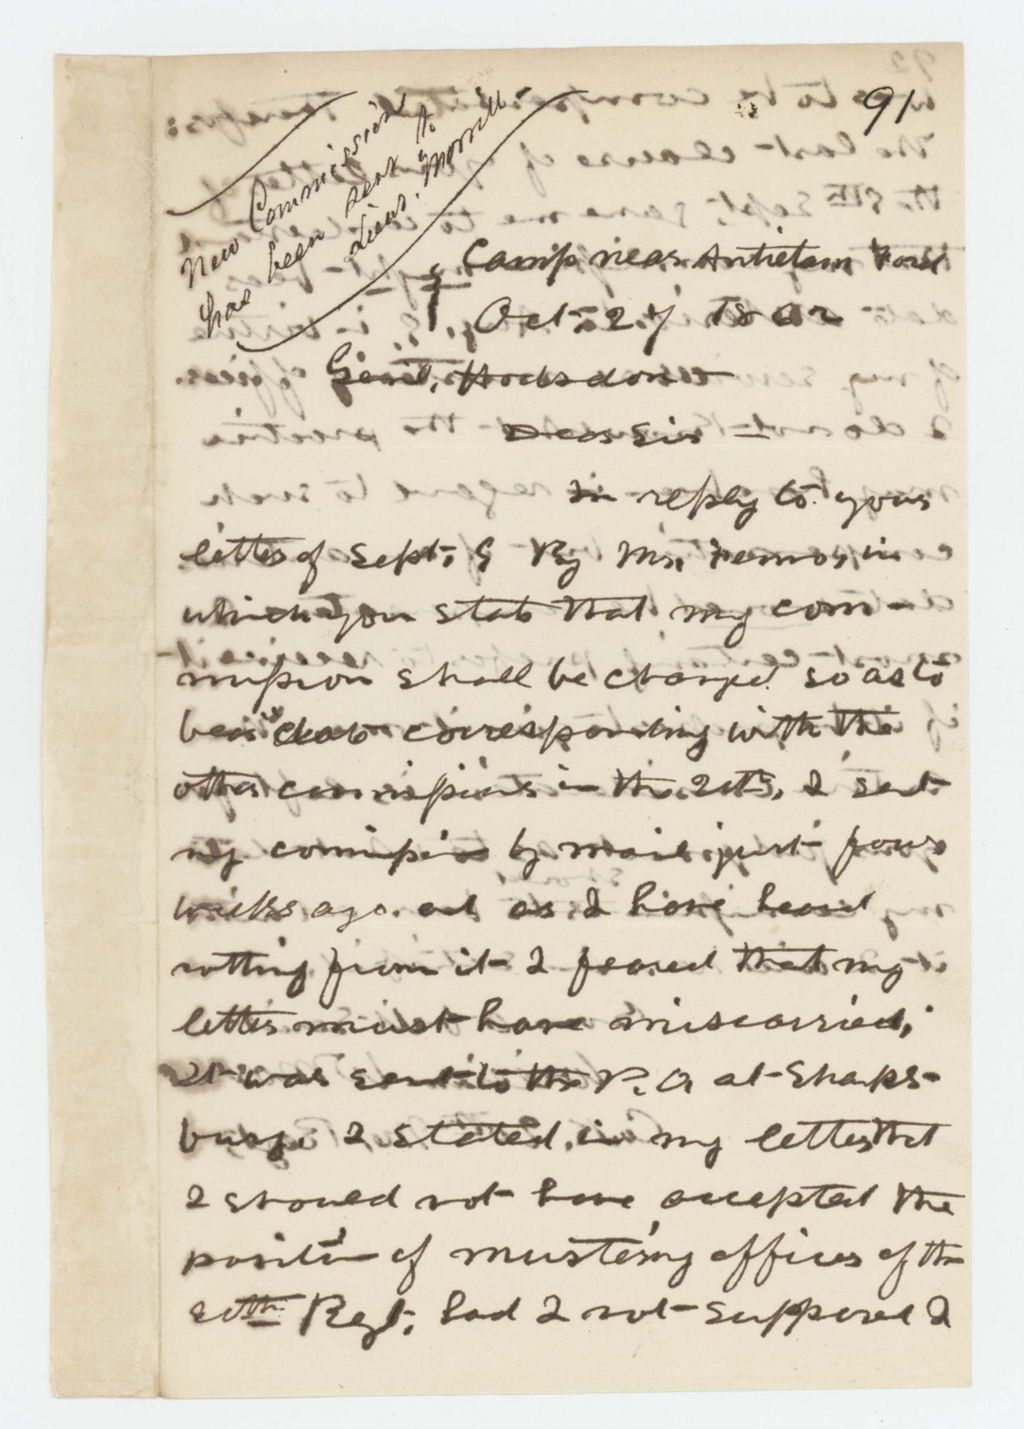 91
New Commission
has been sent to
Lieut. Morrill
Camp near Antietam Ford
Oct. 27 1862
Genl. Hodsdon
Dear Sir —
In reply to your
letter of Sept. 9 By Mr. in
which you state that my com-
mission shall be changed so as to
bear date corresponding with the
other commissions in the 20th, I sent
my commission by mail just four
weeks ago. and as I have heard
nothing from it I feared that my
letter must have miscarried,
It was sent to the P. O at Sharps-
burg. I stated in my letter that
I should not have accepted the
position of mustering officer of the
20th Regt. had I not supposed I